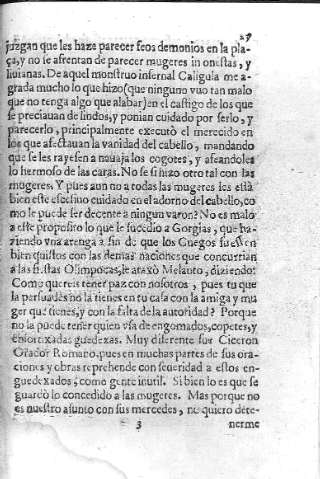 27
juzgan que les haze parecer feos demonios en la pla-
ça, y no se afrentan de parecer mugeres in onestas, y
liuianas. De aquel monstruo infernal Caligula me a-
grada mucho lo que hizo (que ninguno vuo tan malo
que no tenga algo que alabar) en el castigo de los que
se preciauan de lindos, y ponian cuidado por serlo, y
parecerlo, principalmente executò el merecido en
los que afectauan la vanidad del cabello, mandando
que se les rayesen a nauaja los cogotes, y afeandoles
lo hermoso de las caras. No se si hizo otro tal con las
mugeres. Y pues aun no a todas las mugeres les està
bien este efectiuo cuidado en el adorno del cabello, co
mo le puede ser decente a ningun varon? No es malo
a este proposito lo que le sucedio a Gorgias, que ha-
ziendo vna arenga a fin de que los Guegos fuessen
bien quistos con las demas naciones que concurrian
a las fiestas Olimpocas, le ataxò Melanto, diziendo:
Como quereis tener paz con nosotros, pues tu que
la persuades no la tienes en tu casa con la amiga y mu
ger que tienes, y con la falta de la autoridad? Porque
no la puede tener quien vsa de engomados, copetes, y
ensortixadas guedexas. Muy diferente fue Ciceron
Orador Romano, pues en muchas partes de sus ora-
ciones y obras reprehende con seueridad a estos en-
guedexados, como gente inutil. Si bien lo es que se
guardò lo concedido a las mugeres. Mas porque no
es nuestro asunto con sus mercedes, no quiero dete-
3 nerme